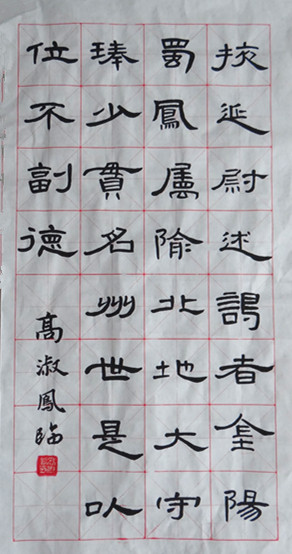 掖延尉述謁者金陽
蜀鳳屬隃北地大守
琫少貫名州世是以
位不副德
高淑鳳臨